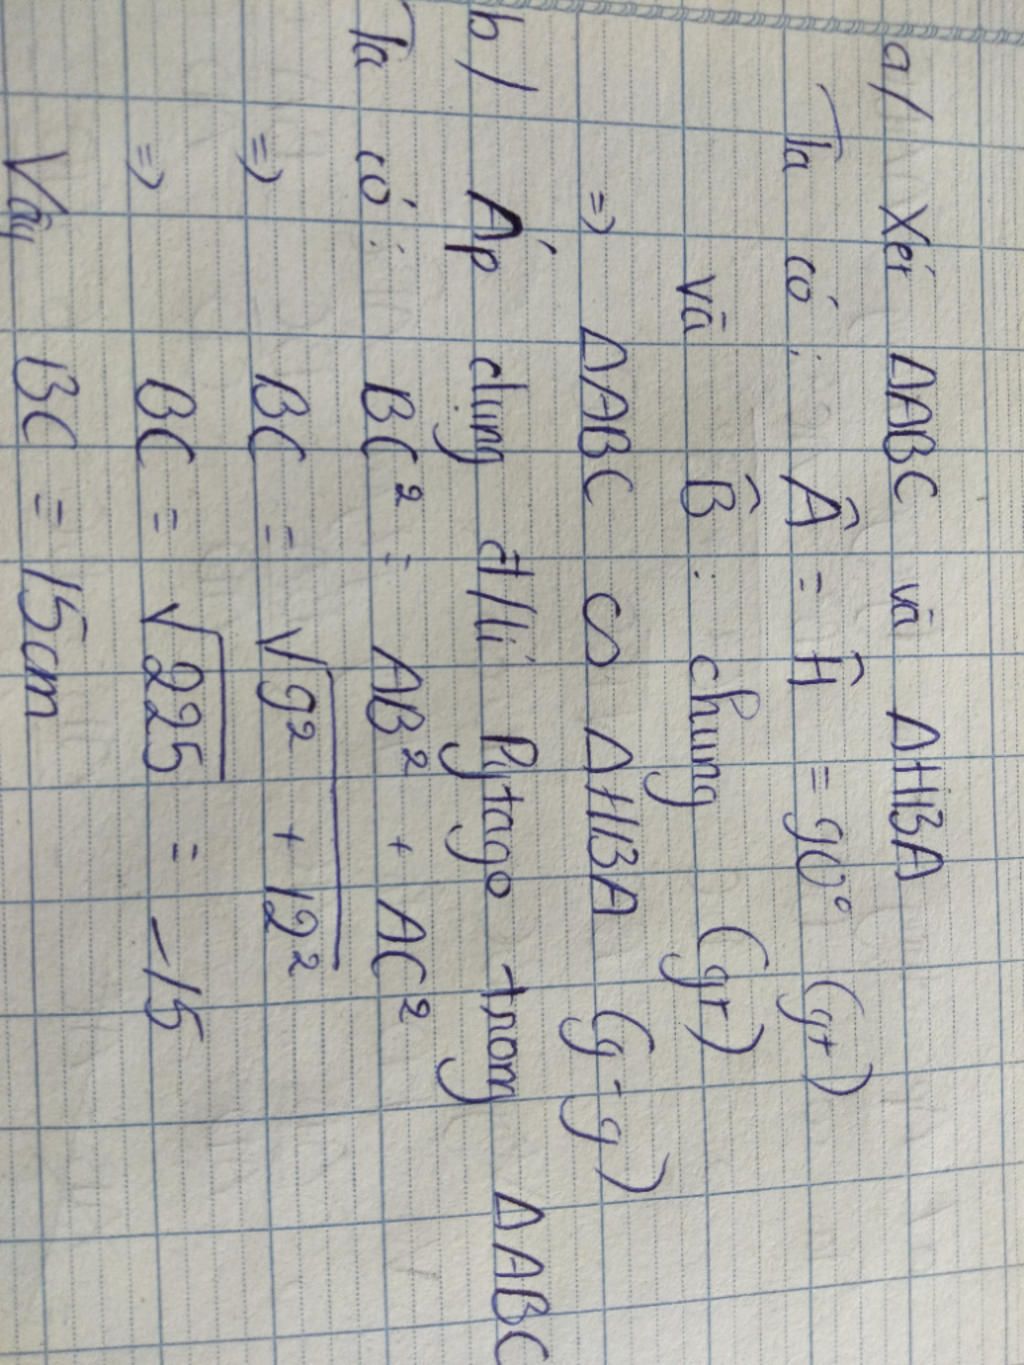 a/ Xét ΔABC và ΔHBA
Ta có: Â = Ĥ = 90° (gt)
và B̂ : chung (gt)
=> ΔABC ∽ ΔHBA (g-g)
b/ Áp dụng đ/lí Pytago trong ΔABC
Ta có: BC² = AB² + AC²
=> BC = √9² + 12²
=> BC = √225 = 15
Vậy BC = 15cm